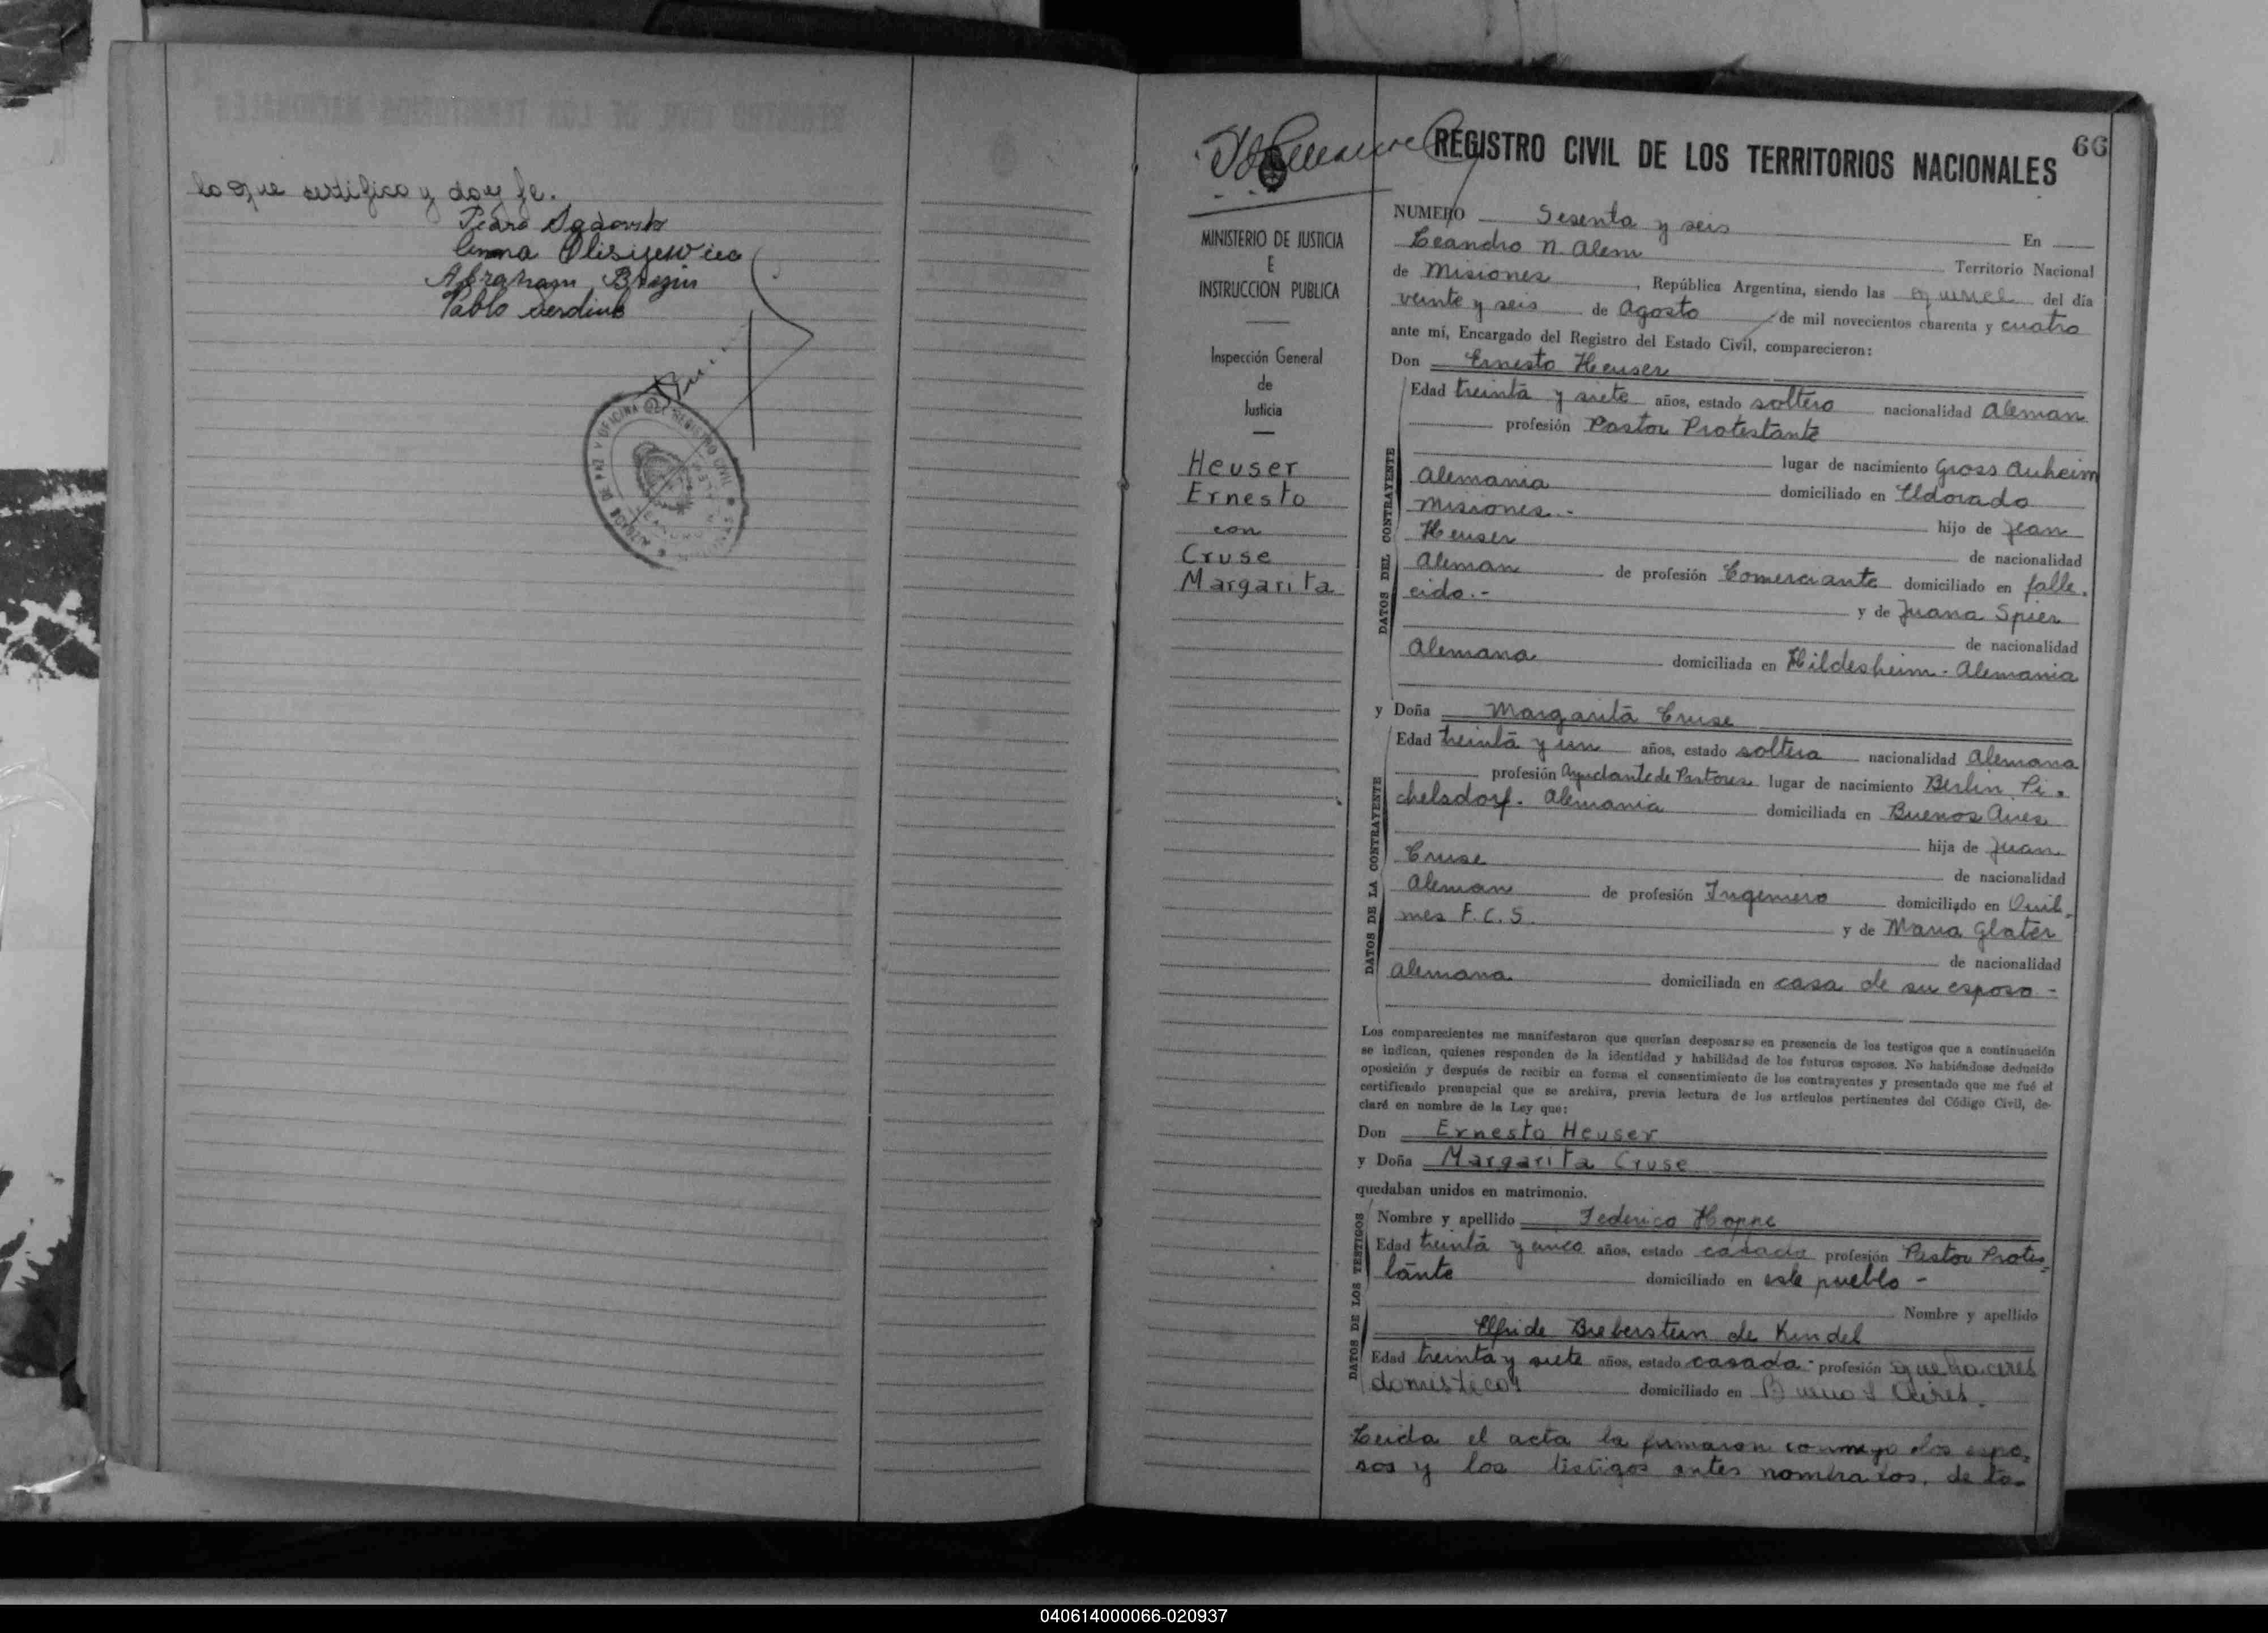 lo que sertifico y doy fe.
Pedro Sadovsk
Abraham Brezin
Pablo
66
REGISTRO CIVIL DE LOS TERRITORIOS NACIONALES
MINISTERIO DE JUSTICIA
E
INSTRUCCION PUBLICA
Inspección General
de
Justicia
Heuser
Ernesto
con
Cruse
Margarita
NUMERO Sesenta y seis En
Leandro N. Alem Territorio Nacional
de Misiones, República Argentina, siendo las quince del día
veinte y seis de Agosto de mil novecientos cuarenta y cuatro
ante mí, Encargado del Registro del Estado Civil, comparecieron:
Don Ernesto Heuser
DATOS DEL CONTRAYENTE
Edad treinta y siete años, estado soltero nacionalidad Aleman
profesión Pastor Protestante
lugar de nacimiento Gross Auheim
Alemania domiciliado en Eldorado
Misiones.- hijo de Jean
Heuser de nacionalidad
Aleman de profesión Comerciante domiciliado en falle-
cido.- y de Juana Spier
de nacionalidad
Alemana domiciliada en Hildesheim - Alemania
y Doña Margarita Cruse
DATOS DE LA CONTRAYENTE
Edad treinta y un años, estado soltera nacionalidad Alemana
profesión Ayudante de Pastores lugar de nacimiento Berlin Pi-
chelsdorf. Alemania domiciliada en Buenos Aires
hija de Juan
Cruse de nacionalidad
Aleman de profesión Ingeniero domiciliado en Quil-
mes F.C.S. y de Maria Glater
de nacionalidad
alemana domiciliada en casa de su esposo -
Los comparecientes me manifestaron que querían desposarse en presencia de los testigos que a continuación
se indican, quienes responden de la identidad y habilidad de los futuros esposos. No habiéndose deducido
oposición y después de recibir en forma el consentimiento de los contrayentes y presentado que me fué el
certificado prenupcial que se archiva, previa lectura de los artículos pertinentes del Código Civil, de-
claré en nombre de la Ley que:
Don Ernesto Heuser
y Doña Margarita Cruse
quedaban unidos en matrimonio.
DATOS DE LOS TESTIGOS
Nombre y apellido Federico Hoppe
Edad treinta y cinco años, estado casado profesión Pastor Protes-
tante domiciliado en este pueblo -
Nombre y apellido
Elfride Bieberstein de Kindel
Edad treinta y siete años, estado casada - profesión quehaceres
domesticos domiciliado en Buenos Aires.
Leida el acta la firmaron conmigo los espo-
sos y los testigos antes nombrados, de to-
040614000066-020937